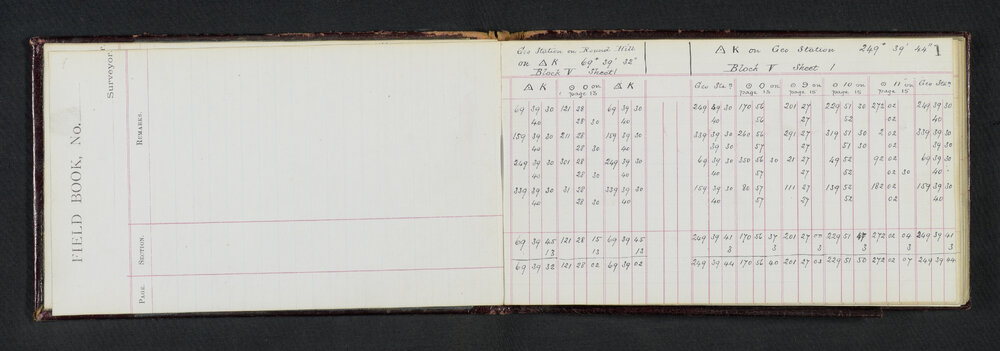 FIELD BOOK, No.
Surveyor
REMARKS.
SECTION.
PAGE.
Geo Station on Round Hill
on △ K 69° 39' 32"
Block V Sheet 1
△ K ⊙ 0 on page 13 △ K
69 39 30 121 28 69 39 30
40 28 30 40
159 39 30 211 28 159 39 30
40 28 30 40
249 39 30 301 28 249 39 30
40 28 30 40
339 39 30 31 28 339 39 30
40 28 30 40
69 39 45 121 28 15 69 39 45
13 13 13
69 39 32 121 28 02 69 39 02
△ K on Geo Station 249° 39' 44" 1
Block V Sheet 1
Geo Stan ⊙ 0 on page 13 ⊙ 9 on page 15 ⊙ 10 on page 15 ⊙ 11 on page 15 Geo Stan
249 39 30 170 56 201 27 229 51 30 272 02 249 39 30
40 56 27 52 02 40
339 39 30 260 56 291 27 319 51 30 2 02 339 39 30
39 30 57 27 51 30 02 39 30
69 39 30 350 56 30 21 27 49 52 92 02 69 39 30
40 57 27 52 02 30 40
159 39 30 80 57 111 27 139 52 182 02 159 39 30
40 57 27 52 02 40
249 39 41 170 56 37 201 27 00 229 51 47 272 02 04 249 39 41
3 3 3 3 3 3
249 39 44 170 56 40 201 27 03 229 51 50 272 02 07 249 39 44